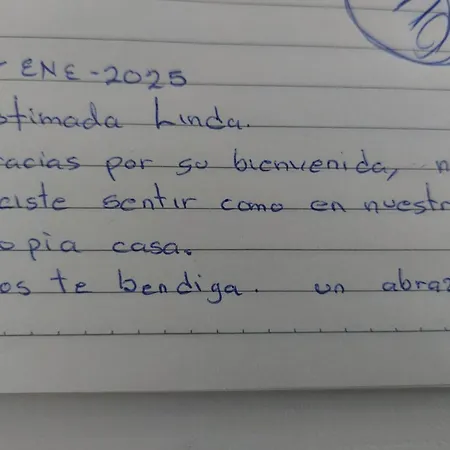 - ENE - 2025
stimada Linda.
racias por su bienvenida, n
ciste sentir como en nuestr
opia casa.
os te bendiga. un abraz